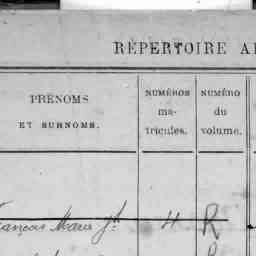 RÉPERTOIRE A
PRÉNOMS
ET SURNOMS.
NUMÉROS
ma-
tricules.
NUMÉRO
du
volume.
François Marie Jh 4 R